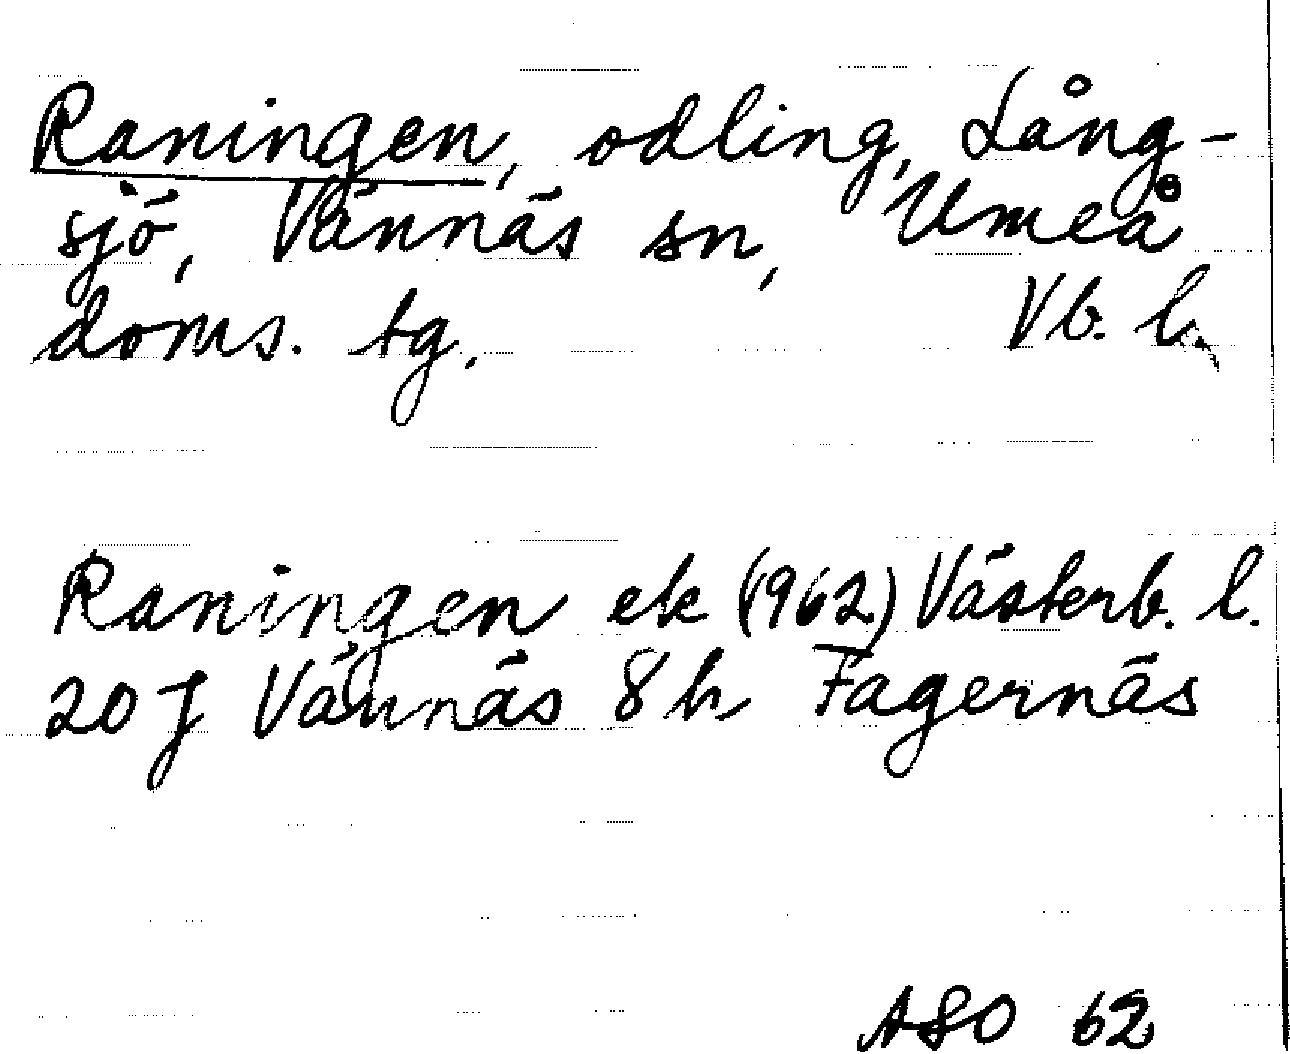 Raningen, odling, Lång-
sjö, Vännäs sn, Umeå
doms. tg. Vb. l.
Raningen ek (1962) Västerb. l.
20 J Vännäs 8 h Fagernäs
ASO 62